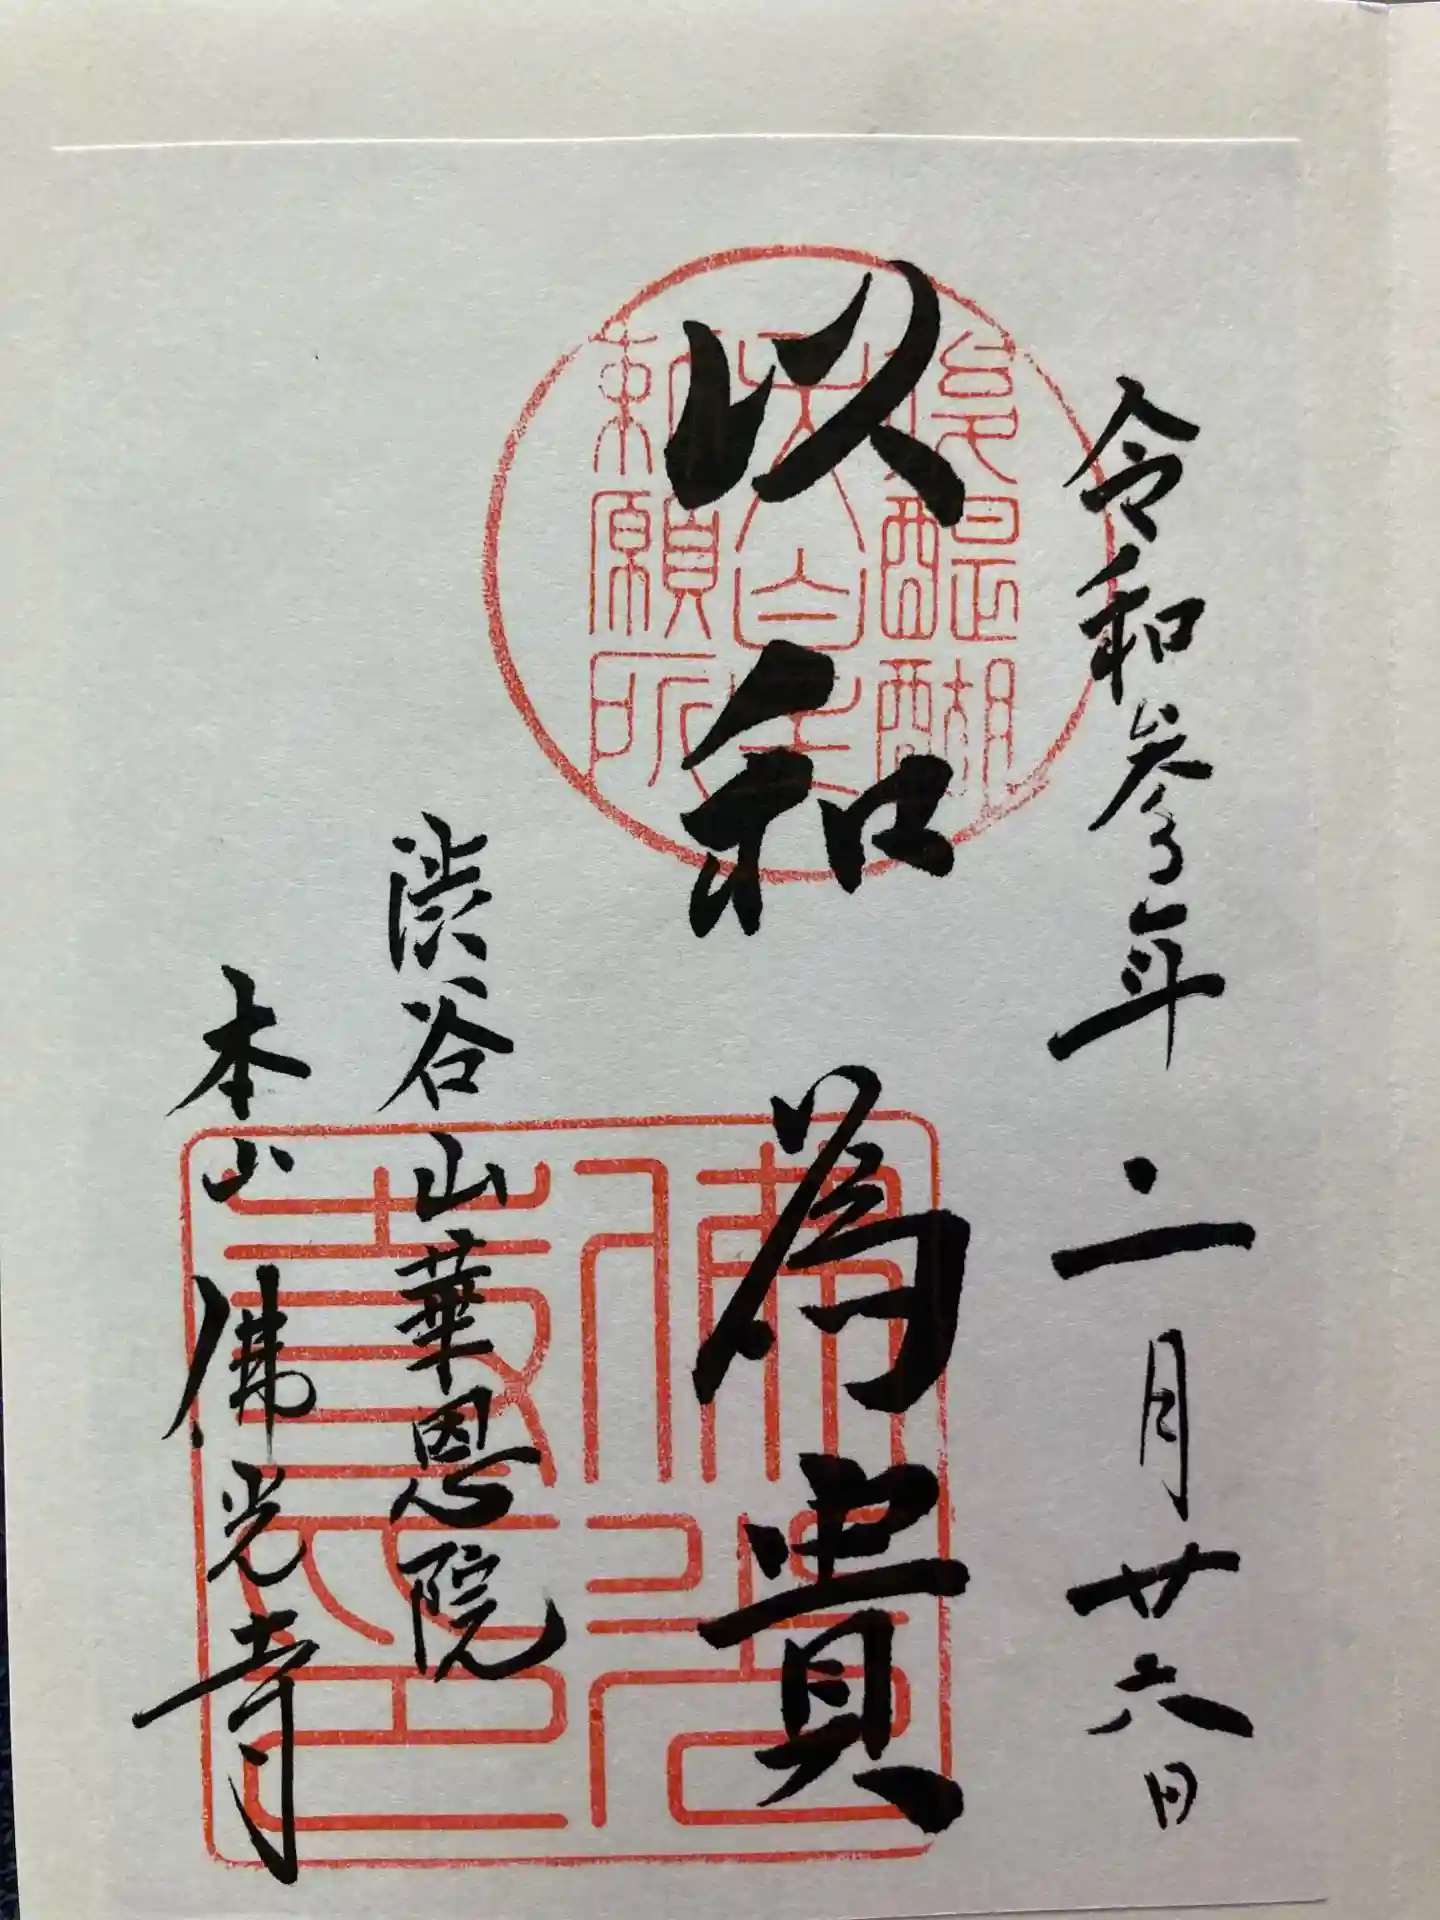 令和参年二月廿六日
以和為貴
渋谷山華恩院
本山佛光寺
後醍醐
天皇
勅願所